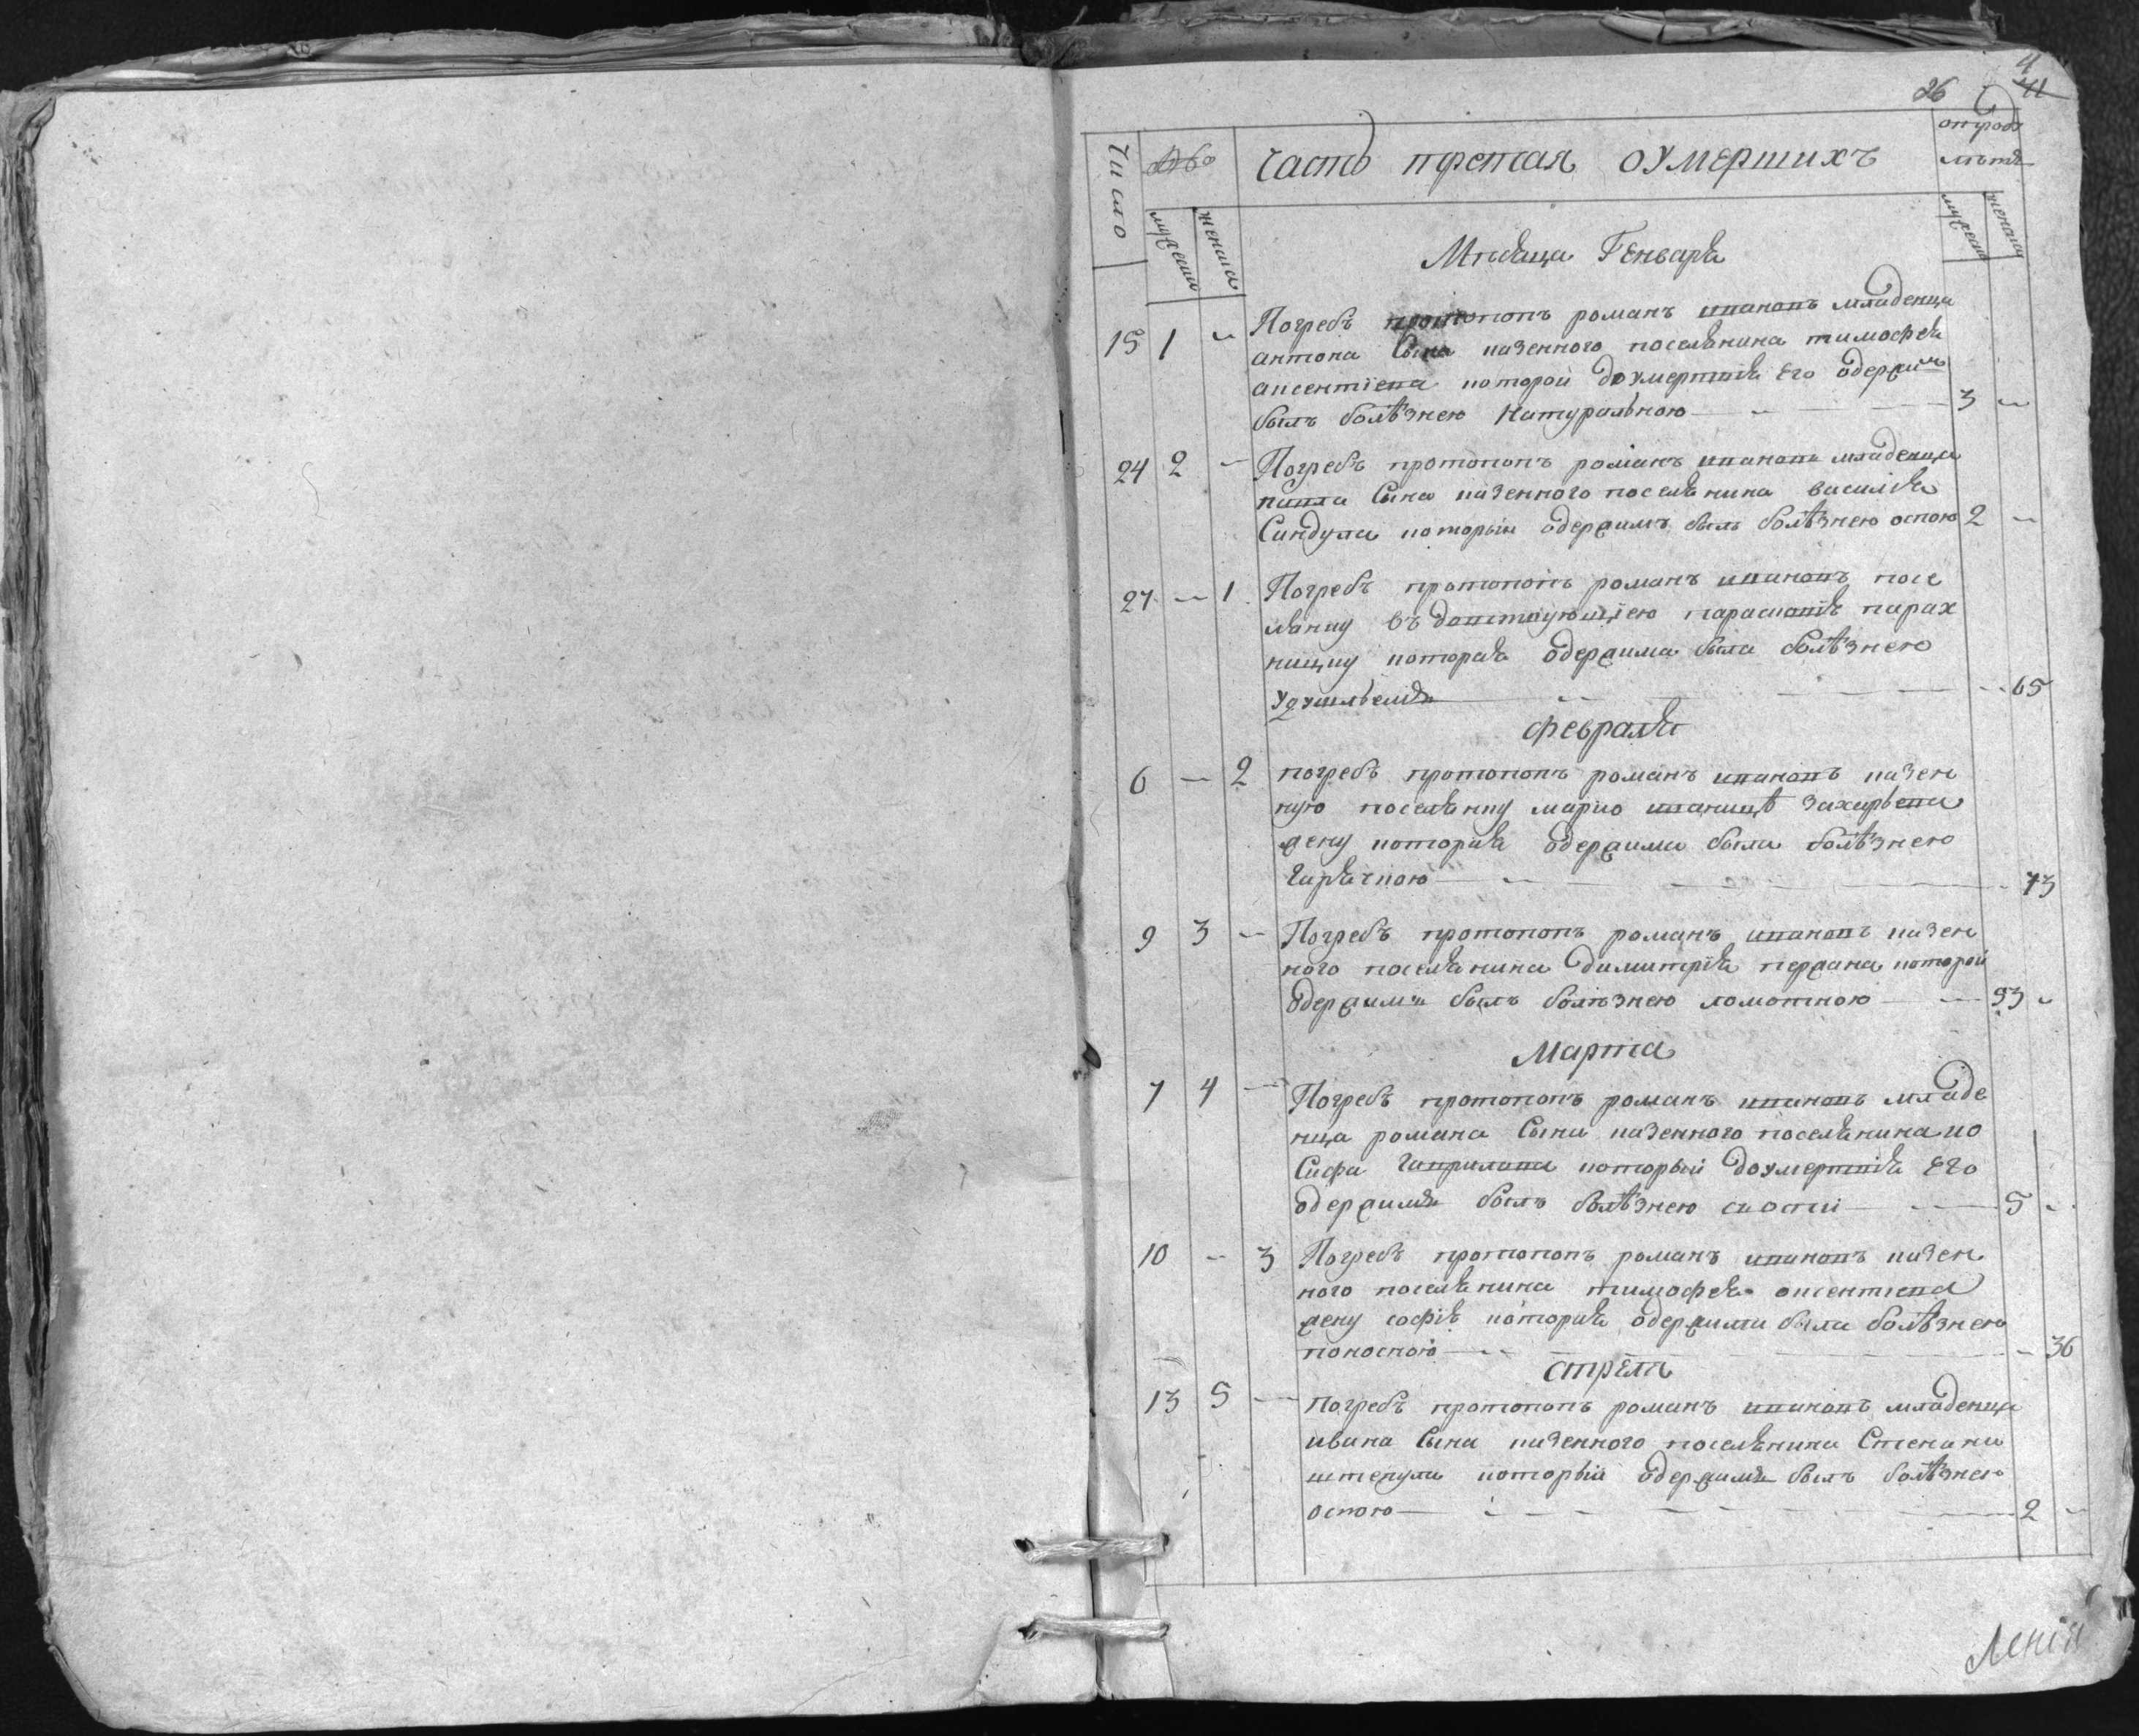 26
4
11
Число
часть третая оумершихъ
отрод
лѣта
мужеска
женска
мужеска
женска
Мѣсяца Генваря
15 1 Погребъ протопопъ романъ ивановъ младенца
антона сына казенного поселянина тимофея
аксентіева которой до умертвія его одержимъ
былъ болѣзнею натуральною 3
24 2 Погребъ протопопъ романъ ивановъ младенца
павла сына казенного поселянина василія
Сандула которыи одержимъ былъ болѣзнею оспою 2
27 1 Погребъ протопопъ романъ ивановъ посе
лянку вдовствующею
которая одержима была болѣзнею
65
февраля
6 2 погребъ протопопъ романъ ивановъ казен
ную поселянку марию захарьева
жену которая одержима была болѣзнею
гарячкою 73
9 3 Погребъ протопопъ романъ ивановъ казен
ного поселянина димитрія пержана которой
одержимъ былъ болѣзнею ломотною 93
Марта
7 4 Погребъ протопопъ романъ ивановъ младе
нца романа сына казенного поселянина ио
сифа гаврилова которыи до умертвія его
одержимъ былъ болѣзнею 5
10 3 Погребъ протопопъ романъ ивановъ казен
ного поселянина тимофея аксентиева
жену софію которая одержима была болѣзнею
поносною 36
апреля
13 5 погребъ протопопъ романъ ивановъ младенца
ивана сына казенного поселянина Степана
которыи одержимъ былъ болѣзнею
оспою 2
ленія